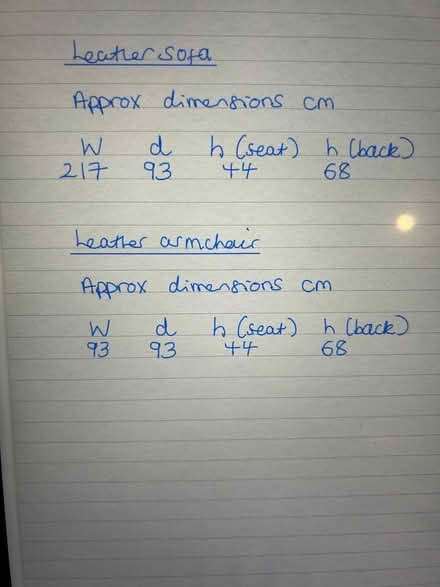 Leather sofa
Approx dimensions cm
W d h (seat) h (back)
217 93 44 68
Leather armchair
Approx dimensions cm
W d h (seat) h (back)
93 93 44 68